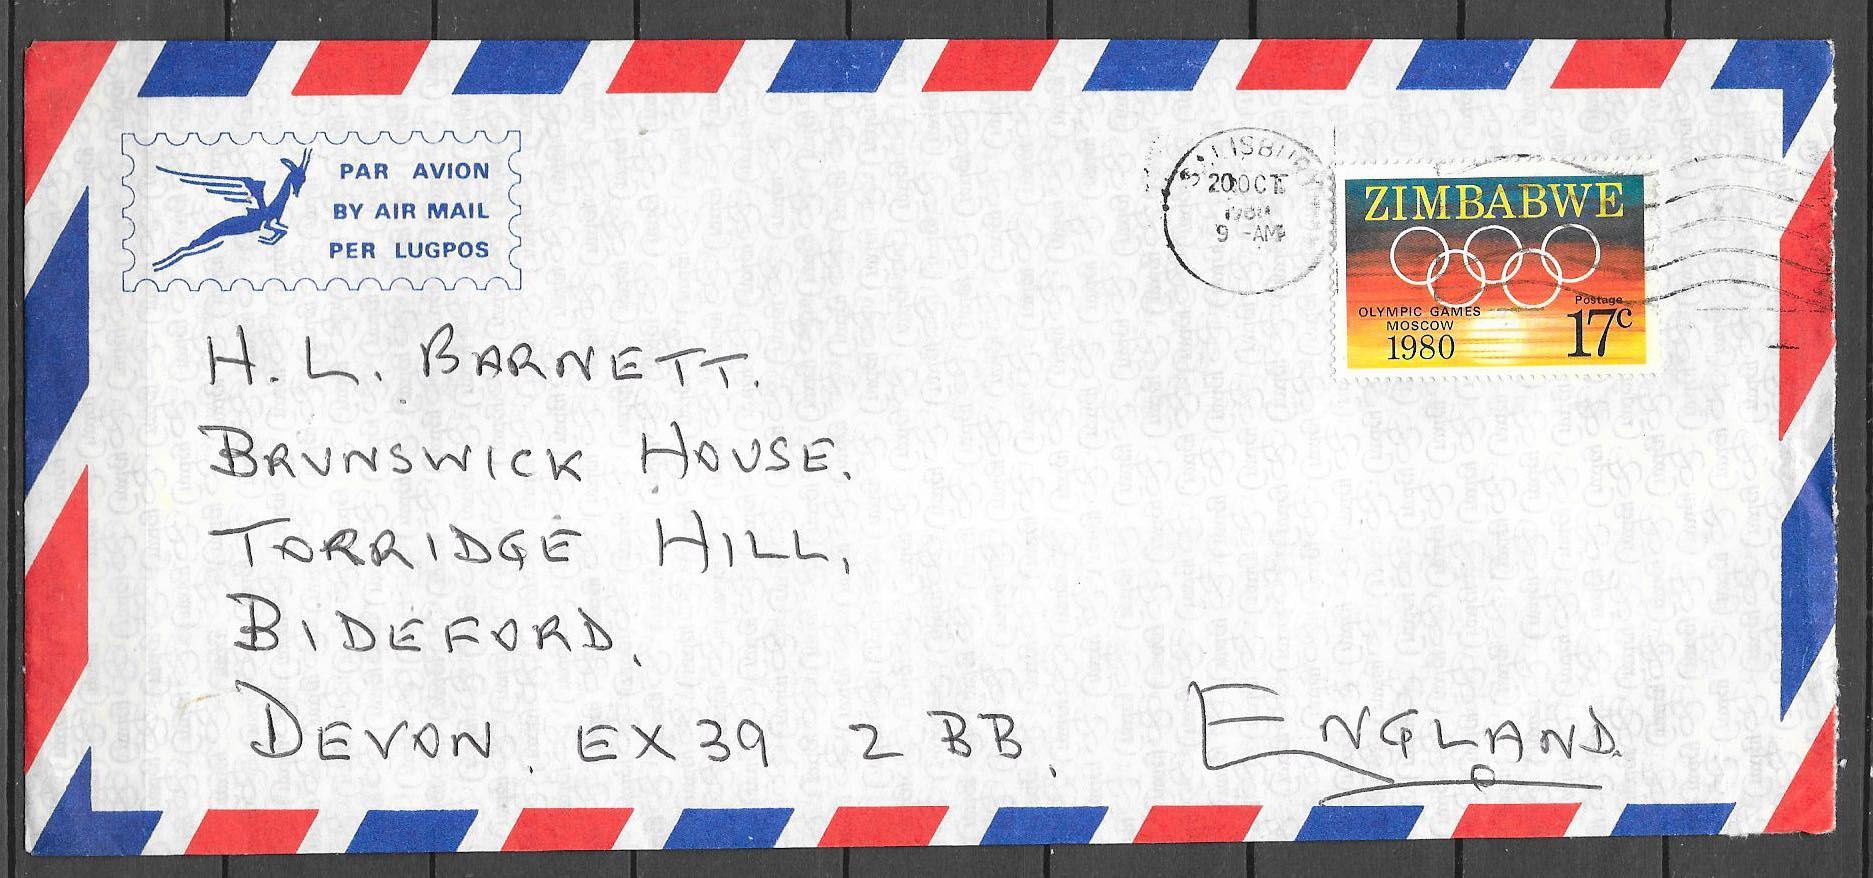 PAR AVION
BY AIR MAIL
PER LUGPOS
SALISBURY
20 OCT
1980
9 -AM
ZIMBABWE
OLYMPIC GAMES
MOSCOW
1980
Postage
17c
H. L. BARNETT.
BRUNSWICK HOUSE,
TORRIDGE HILL,
BIDEFORD,
DEVON, EX39 2BB,
ENGLAND.